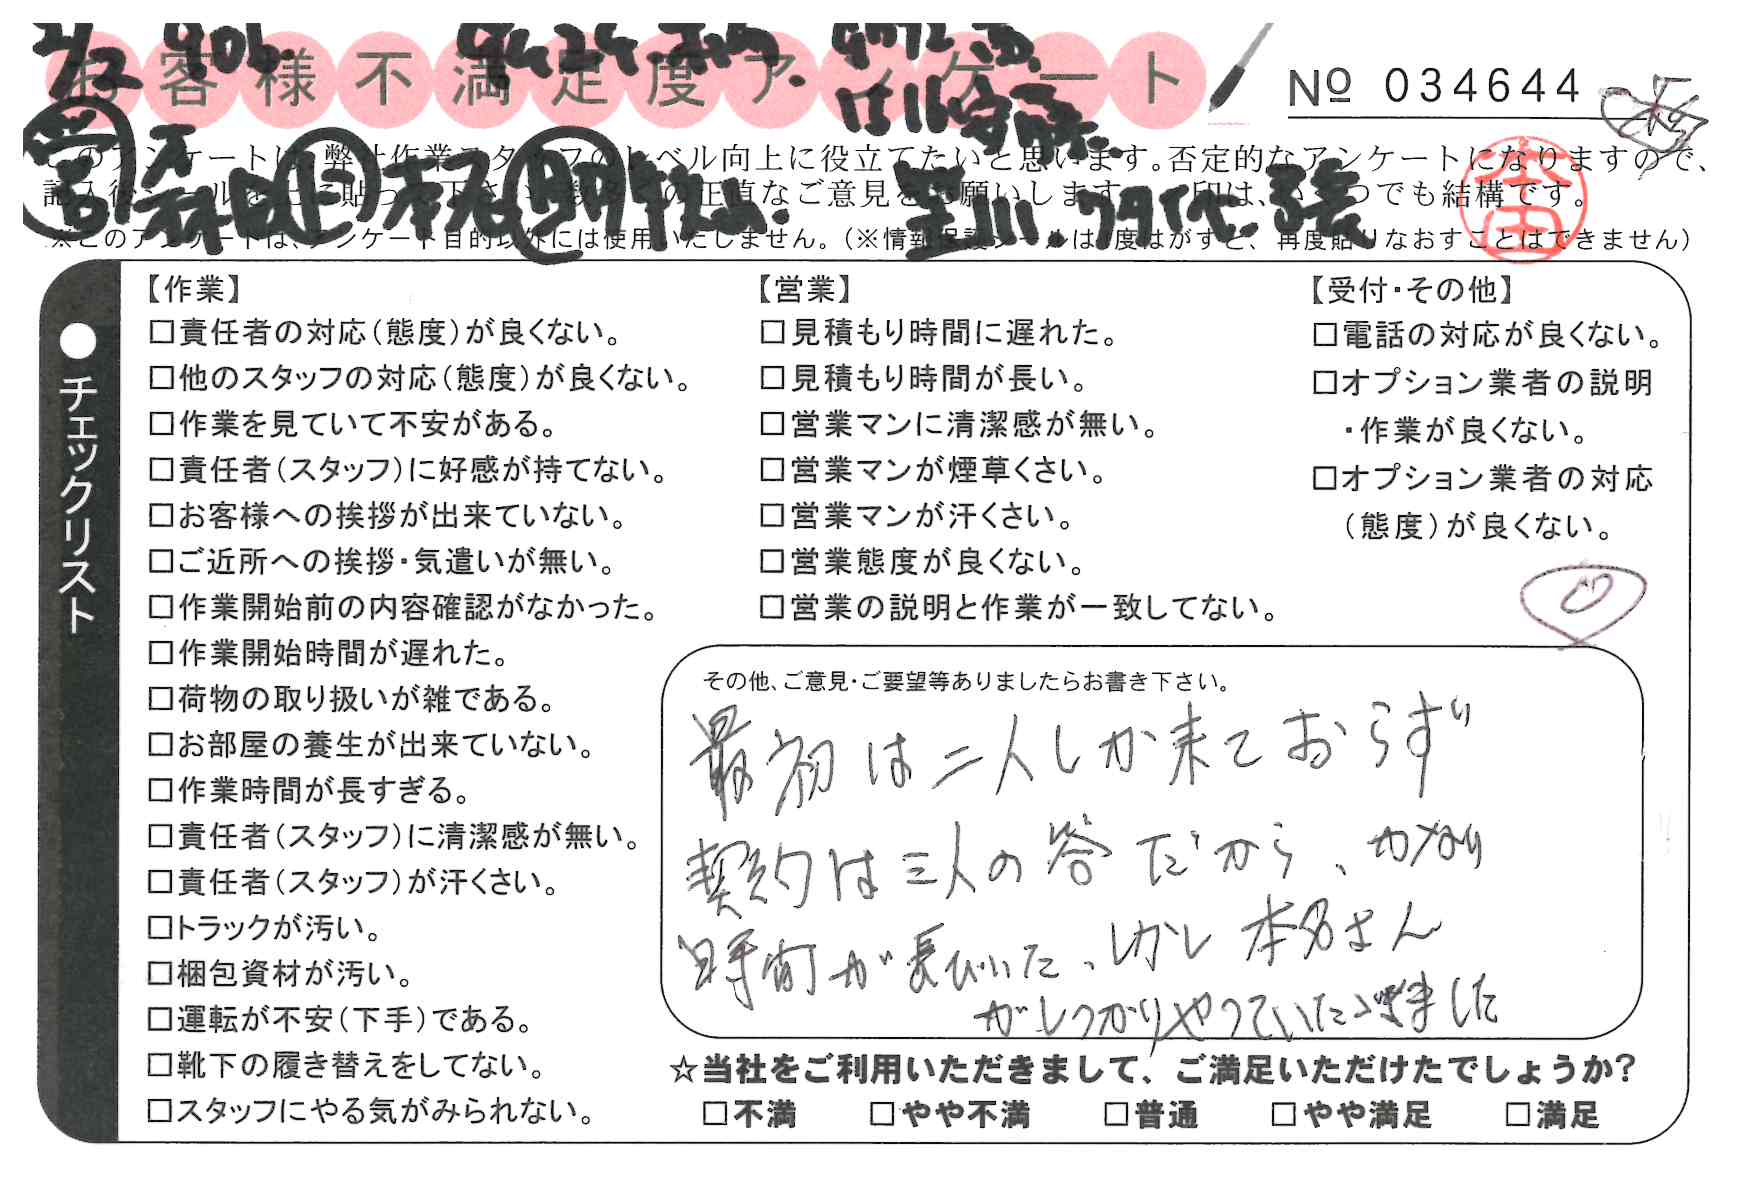 お客様不満足度アンケート
№ 034644
このアンケートは、弊社作業スタッフのレベル向上に役立てたいと思います。否定的なアンケートになりますので、
※このアンケートは、アンケート目的以外には使用いたしません。(※情報保護シールは1度はがすと、再度貼りなおすことはできません)
●チェックリスト
【作業】
□責任者の対応(態度)が良くない。
□他のスタッフの対応(態度)が良くない。
□作業を見ていて不安がある。
□責任者(スタッフ)に好感が持てない。
□お客様への挨拶が出来ていない。
□ご近所への挨拶・気遣いが無い。
□作業開始前の内容確認がなかった。
□作業開始時間が遅れた。
□荷物の取り扱いが雑である。
□お部屋の養生が出来ていない。
□作業時間が長すぎる。
□責任者(スタッフ)に清潔感が無い。
□責任者(スタッフ)が汗くさい。
□トラックが汚い。
□梱包資材が汚い。
□運転が不安(下手)である。
□靴下の履き替えをしてない。
□スタッフにやる気がみられない。
【営業】
□見積もり時間に遅れた。
□見積もり時間が長い。
□営業マンに清潔感が無い。
□営業マンが煙草くさい。
□営業マンが汗くさい。
□営業態度が良くない。
□営業の説明と作業が一致してない。
【受付・その他】
□電話の対応が良くない。
□オプション業者の説明
・作業が良くない。
□オプション業者の対応
(態度)が良くない。
その他、ご意見・ご要望等ありましたらお書き下さい。
最初は二人しか来ておらず
契約は三人の筈だから、かなり
時間が長びいた、しかし本名さん
がしっかりやっていただきました
☆当社をご利用いただきまして、ご満足いただけたでしょうか?
□不満 □やや不満 □普通 □やや満足 □満足